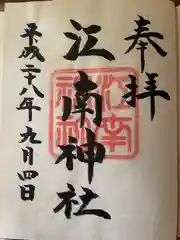 奉拝
江南神社
江南神社
平成二十八年九月四日